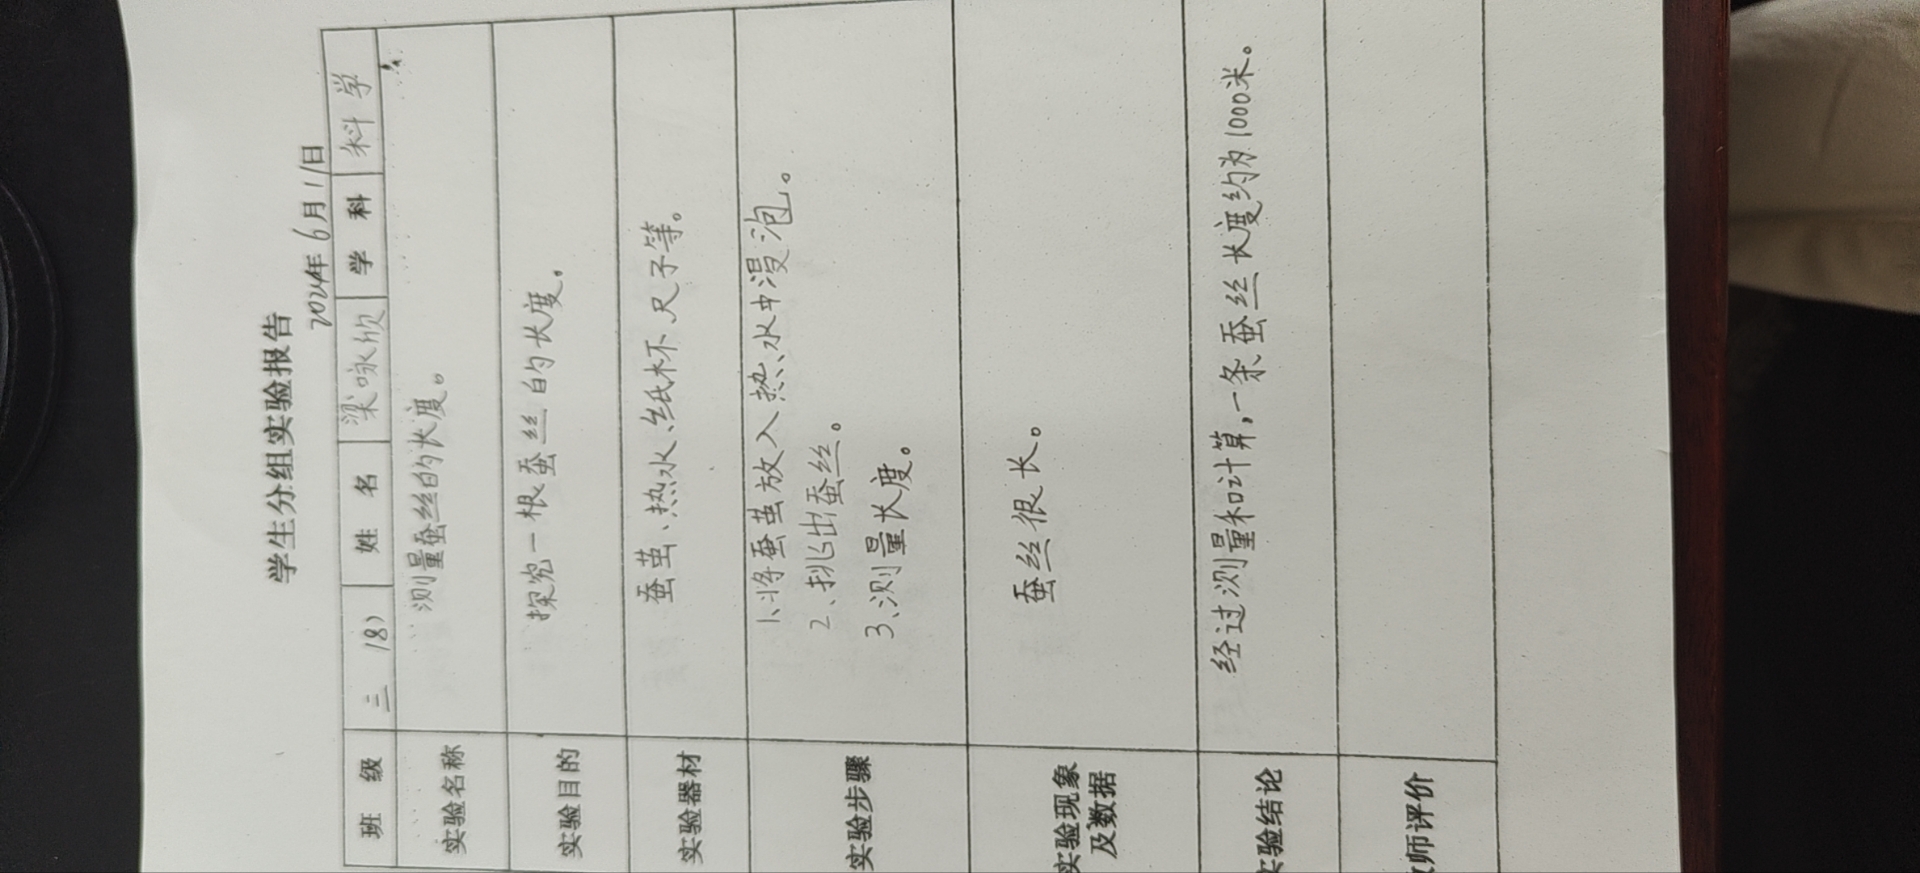 学生分组实验报告
2024年6月11日
班 级 三 (8) 姓 名 梁咏欣 学 科 科学
实验名称 测量蚕丝的长度。
实验目的 探究一根蚕丝的长度。
实验器材 蚕茧、热水、纸杯、尺子等。
实验步骤 1、将蚕茧放入热水中浸泡。
2、挑出蚕丝。
3、测量长度。
实验现象
及数据 蚕丝很长。
实验结论 经过测量和计算,一条蚕丝长度约为1000米。
教师评价